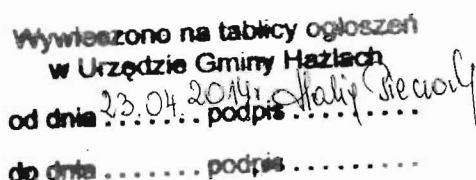 Wywieszono na tablicy ogłoszeń
w Urzędzie Gminy Hażlach
od dnia 23.04.2014r. podpis
do dnia ........ podpis ..........